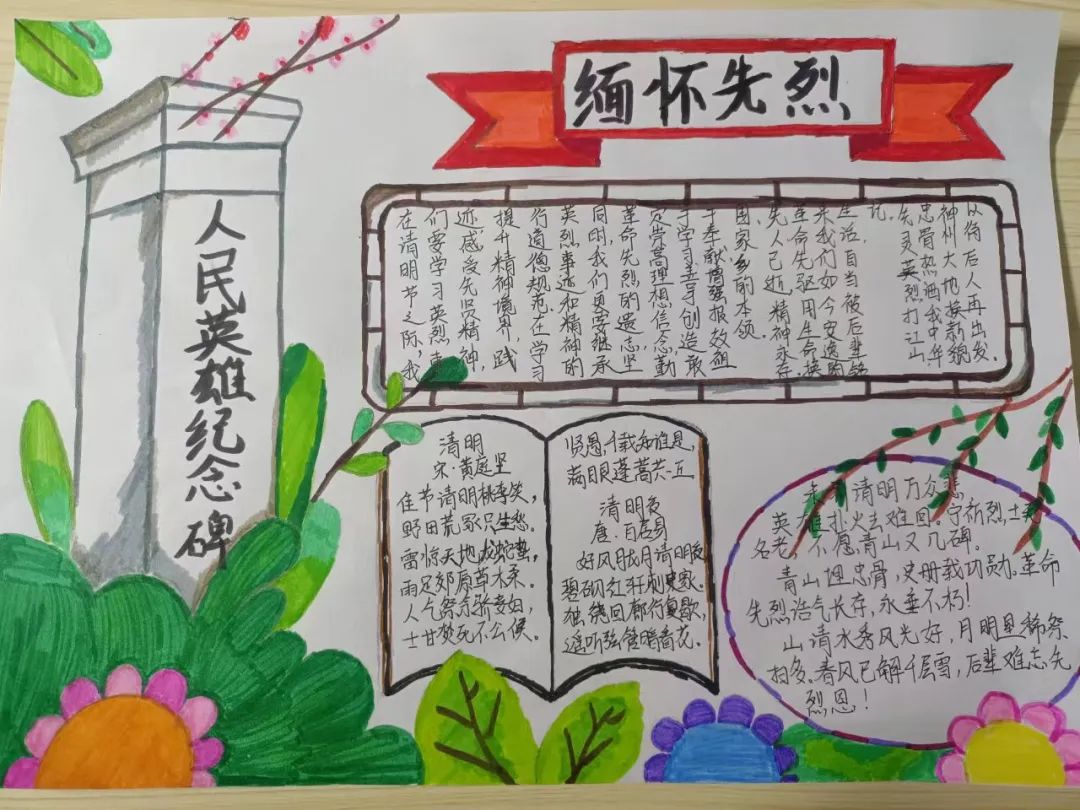 缅怀先烈
人民英雄纪念碑
在清明节之际,我
们要学习英烈事
迹感受先贤精神,
提升精神境界,践
行道德规范.在学习
英烈事迹和精神的
同时,我们更要继承
革命先烈的遗志坚
定崇高理想信念,勤
于学习善于创造敢
于奉献,增强报效祖
国家乡的本领.
先人已逝,精神永存.
革命先驱用生命换
来我们如今安逸的
生活,自当被后辈铭
记.
先灵英烈打江山,
忠骨热洒我中华
神州大地换新貌
以待后人再出发.
清明
宋·黄庭坚
佳节清明桃李笑,
野田荒冢只生愁.
雷惊天地龙蛇蛰,
雨足郊原草木柔.
人乞祭余骄妾妇,
士甘焚死不公侯.
贤愚千载知谁是,
满眼蓬蒿共一丘
清明夜
唐·白居易
好风胧月清明夜
碧砌红轩刺史家.
独绕回廊行复歇,
遥听弦管暗看花.
清明万众悲
英雄赴火立难回。宁祈烈士
名老,不愿青山又几碑。
青山埋忠骨,史册载功勋。革命
先烈浩气长存,永垂不朽!
山清水秀风光好,月明星稀祭
扫多.春风已解千层雪,后辈难忘先
烈恩!